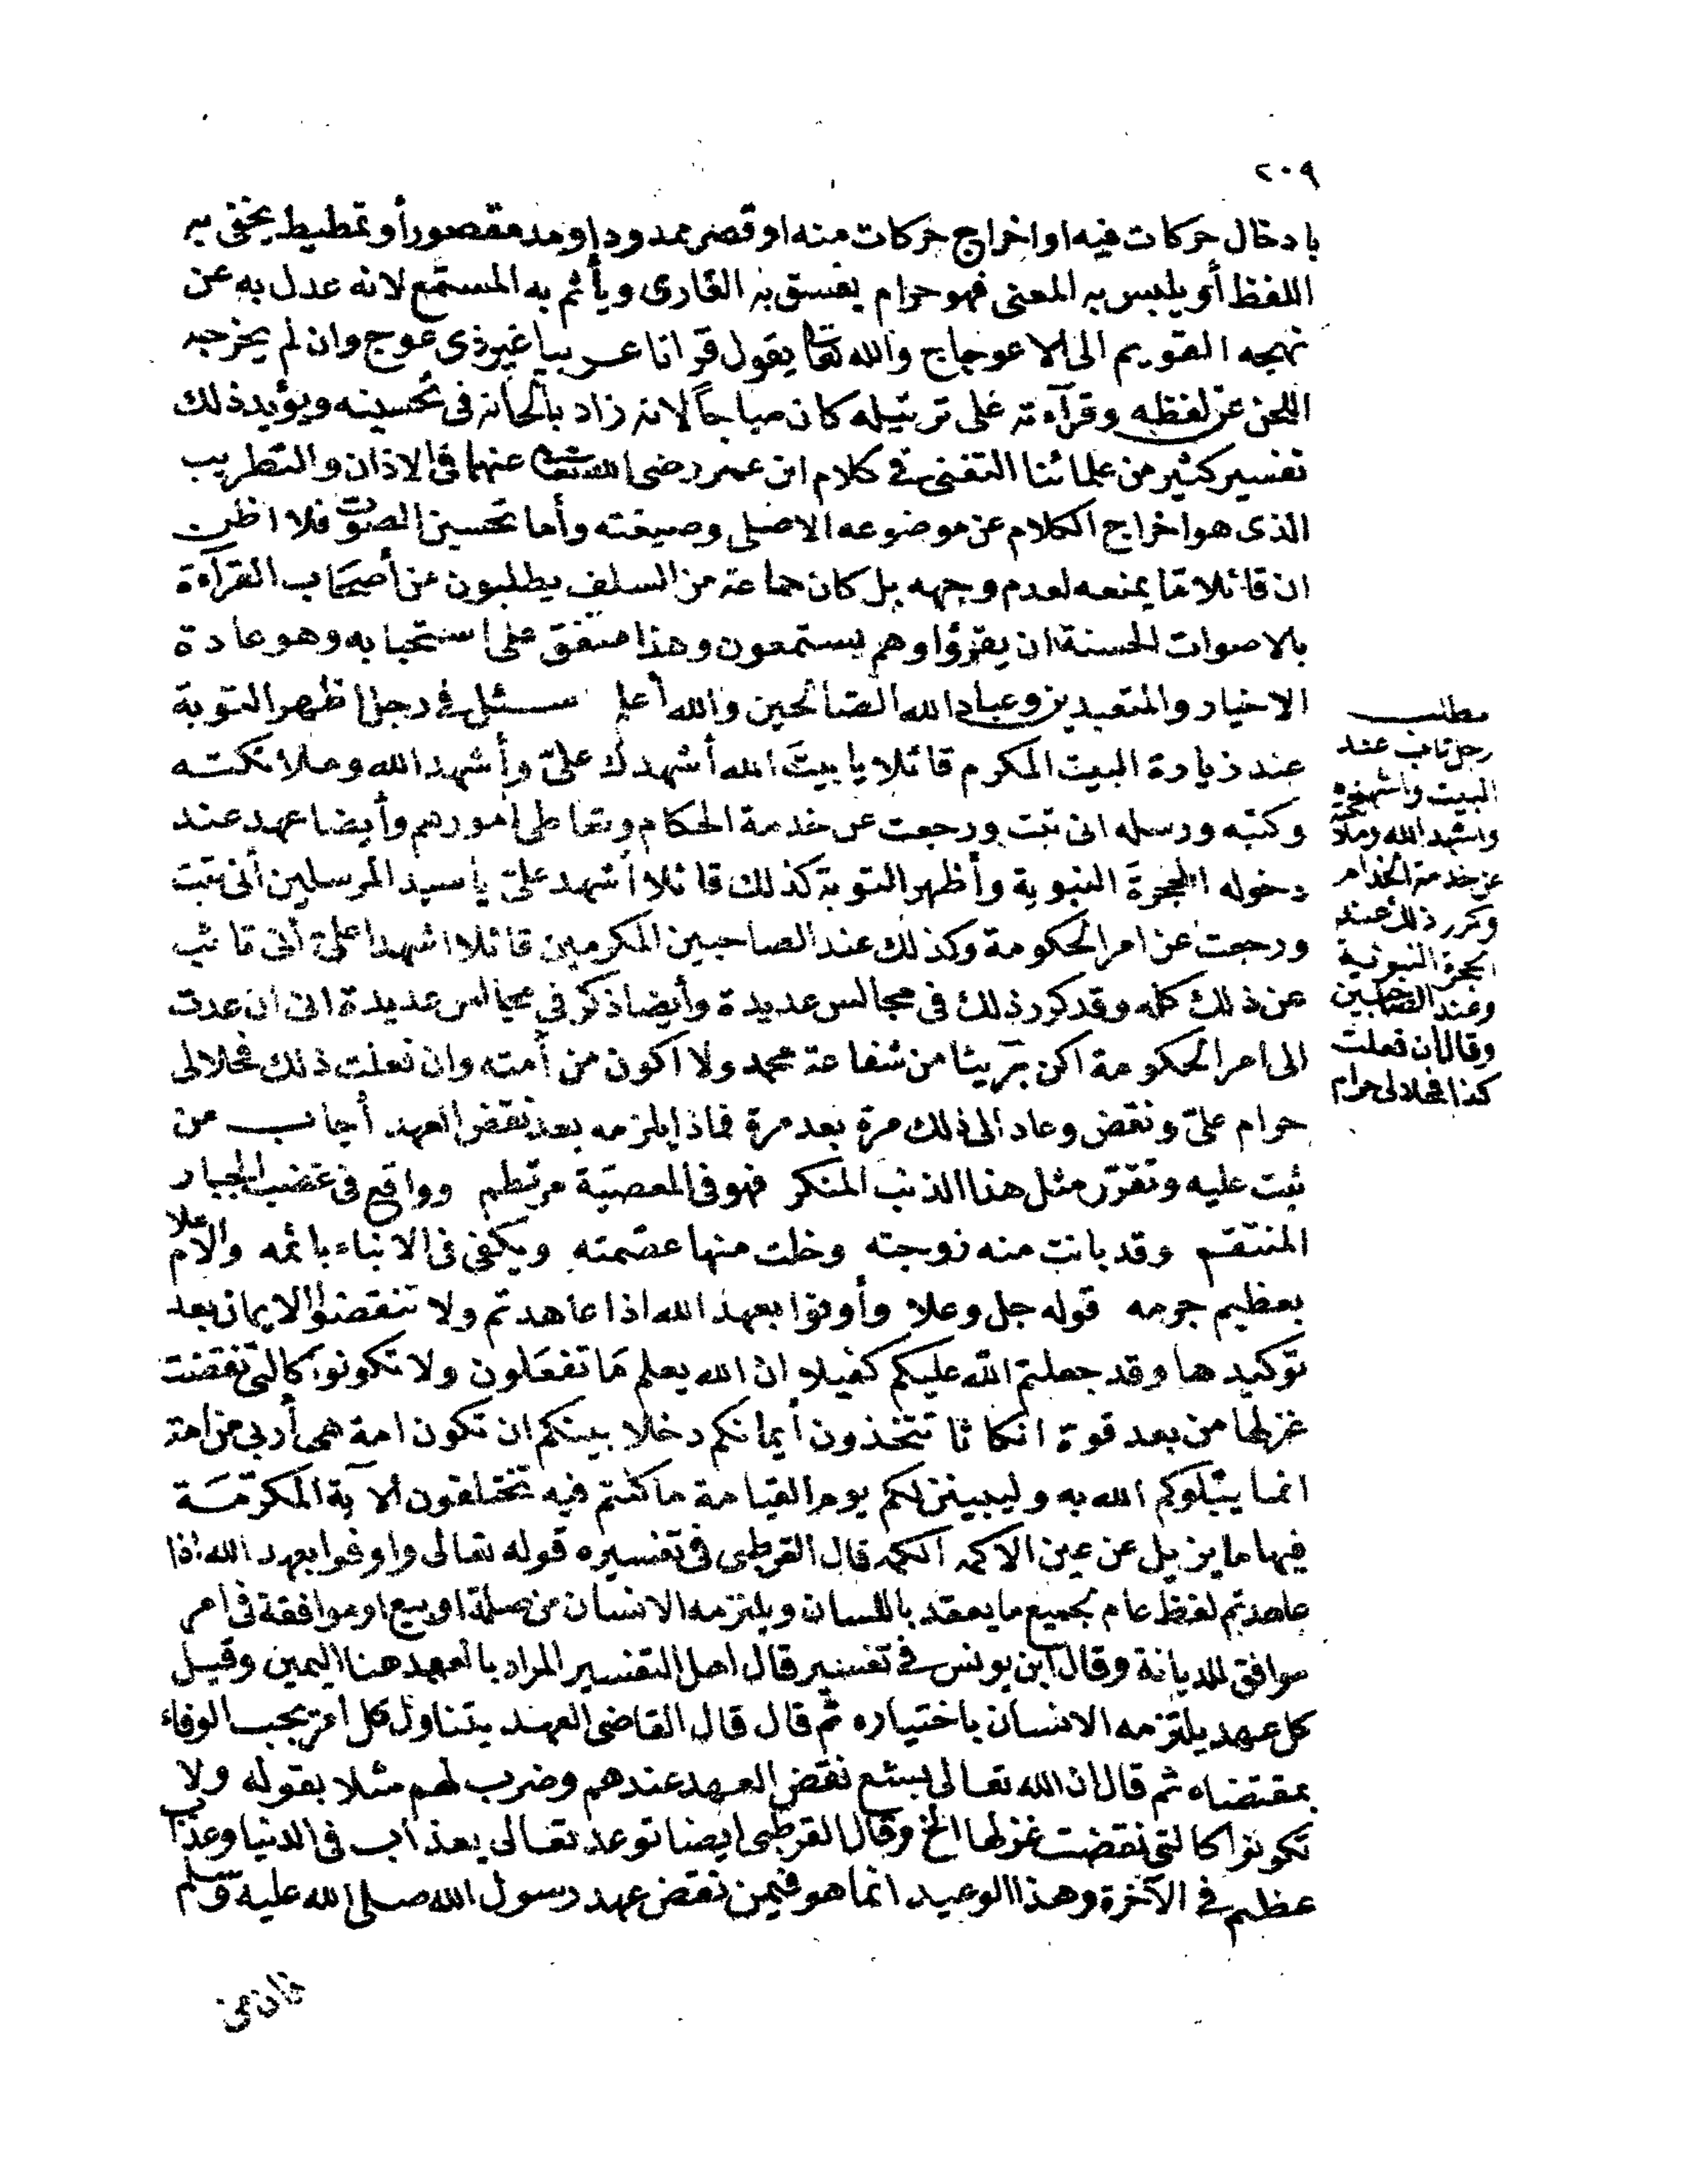 ٢٠٩
بادخال حركات فيه او اخراج حركات منه او قصر ممدود او مد مقصور أو تمطيط يخفى به
اللفظ أو يلبس به المعنى فهو حرام يفسق به القارى ويأثم به المستمع لانه عدل به عن
نهجه القويم الى الاعوجاج والله تعا يقول قرانا عربيا غير ذى عوج وان لم يخرجه
اللحن عن لفظه وقرآءته على ترتيله كان مباحاً لانه زاد بألحانه فى تحسينه ويؤيد ذلك
تفسير كثير من علمائنا التغنى فى كلام ابن عمر رضى الله تعا عنهما فى الاذان والتطريب
الذى هو اخراج الكلام عن موضوعه الاصلى وصيغته وأما تحسين الصوت فلا اظن
ان قائلا ما يمنعه لعدم وجهه بل كان جماعة من السلف يطلبون من أصحاب القرآءة
بالاصوات الحسنة ان يقرؤا وهم يستمعون وهذا متفق على استحبابه وهو عادة
الاخيار والمتعبدين وعباد الله الصالحين والله أعلم سئل فى رجل اظهر التوبة
عند زيارة البيت المكرم قائلا يا بيت الله أشهدك علىّ وأشهد الله وملائكته
وكتبه ورسله انى تبت ورجعت عن خدمة الحكام وتعاطى أمورهم وأيضا عهد عند
دخوله الحجرة النبوية وأظهر التوبة كذلك قائلا أشهد علىّ يا سيد المرسلين أنى تبت
ورجعت عن امر الحكومة وكذلك عند الصاحبين المكرمين قائلا اشهدا علىّ أنى تائب
عن ذلك كله وقد كرر ذلك فى مجالس عديدة وأيضا ذكر فى مجالس عديدة انى ان عدت
الى امر الحكومة اكن بريئا من شفاعة محمد ولا اكون من أمته وان فعلت ذلك فحلالى
حرام علىّ ونقض وعاد الى ذلك مرة بعد مرة فماذا يلزمه بعد نقض العهد أجاب من
ثبت عليه وتقرّر مثل هذا الذنب المنكر فهو فى المعصية مرتطم وواقع فى غضب الجبار
المنتقم وقد بانت منه زوجته وخلت منها عصمته ويكفى فى الانباء باثمه والاعلام
بعظيم جرمه قوله جل وعلا وأوفوا بعهد الله اذا عاهدتم ولا تنقضوا الايمان بعد
توكيدها وقد جعلتم الله عليكم كفيلا ان الله يعلم ما تفعلون ولا تكونوا كالتى نقضت
غزلها من بعد قوة انكاثا تتخذون أيمانكم دخلا بينكم ان تكون امة هى أربى من امة
انما يبلوكم الله به وليبينن لكم يوم القيامة ما كنتم فيه تختلفون الآية المكرّمة
فيها ما يزيل عن عين الاكمه الكمه قال القرطبى فى تفسيره قوله تعالى واوفوا بعهد الله اذا
عاهدتم لفظ عام لجميع ما يعقد باللسان ويلتزمه الانسان من صلة او بيع او موافقة فى امر
موافق للديانة وقال ابن يونس فى تفسير قال اهل التفسير المراد بالعهد هنا اليمين وقيل
كل عهد يلتزمه الانسان باختياره ثم قال قال القاضى العهد يتناول كل امر يجب الوفاء
بمقتضاه ثم قال ان الله تعالى بشع نقض العهد عندهم وضرب لهم مثلا بقوله ولا
تكونوا كالتى نقضت غزلها الخ وقال القرطبى ايضا توعد تعالى بعذاب فى الدنيا وعذاب
عظيم فى الآخرة وهذا الوعيد انما هو فيمن نقض عهد رسول الله صلى الله عليه وسلم
مطلب
رجل تاب عند
البيت واشهده
واشهد الله وملا
عن خدمة الحكام
وكرر ذلك عند
الحجرة النبوية
وعند الصاحبين
وقال ان فعلت
كذا فحلالى حرام